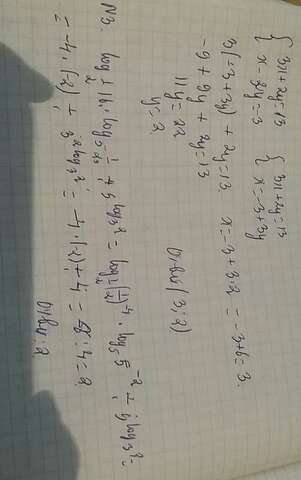 { 3x+2y=13   { 3x+2y=13
x-3y=-3   x=-3+3y
3(-3+3y)+2y=13   x=-3+3·2=-3+6=3.
-9+9y+2y=13
11y=22
y=2   Ответ (3;2)
N3. log 1/2 16 · log 5 1/25 ÷ 9 log 3 2 = log 1/2 (1/2)^-4 · log 5 5^-2 ÷ 9 log 3 2 =
= -4·(-2) ÷ 3^2log 3 2 = -4·(-2) ÷ 4 = 8:4=2.
Ответ: 2